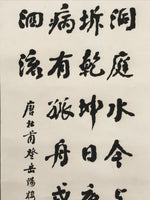 洞庭水今上
坼乾坤日夜
病有孤舟戎
泗流
唐杜甫登岳陽樓